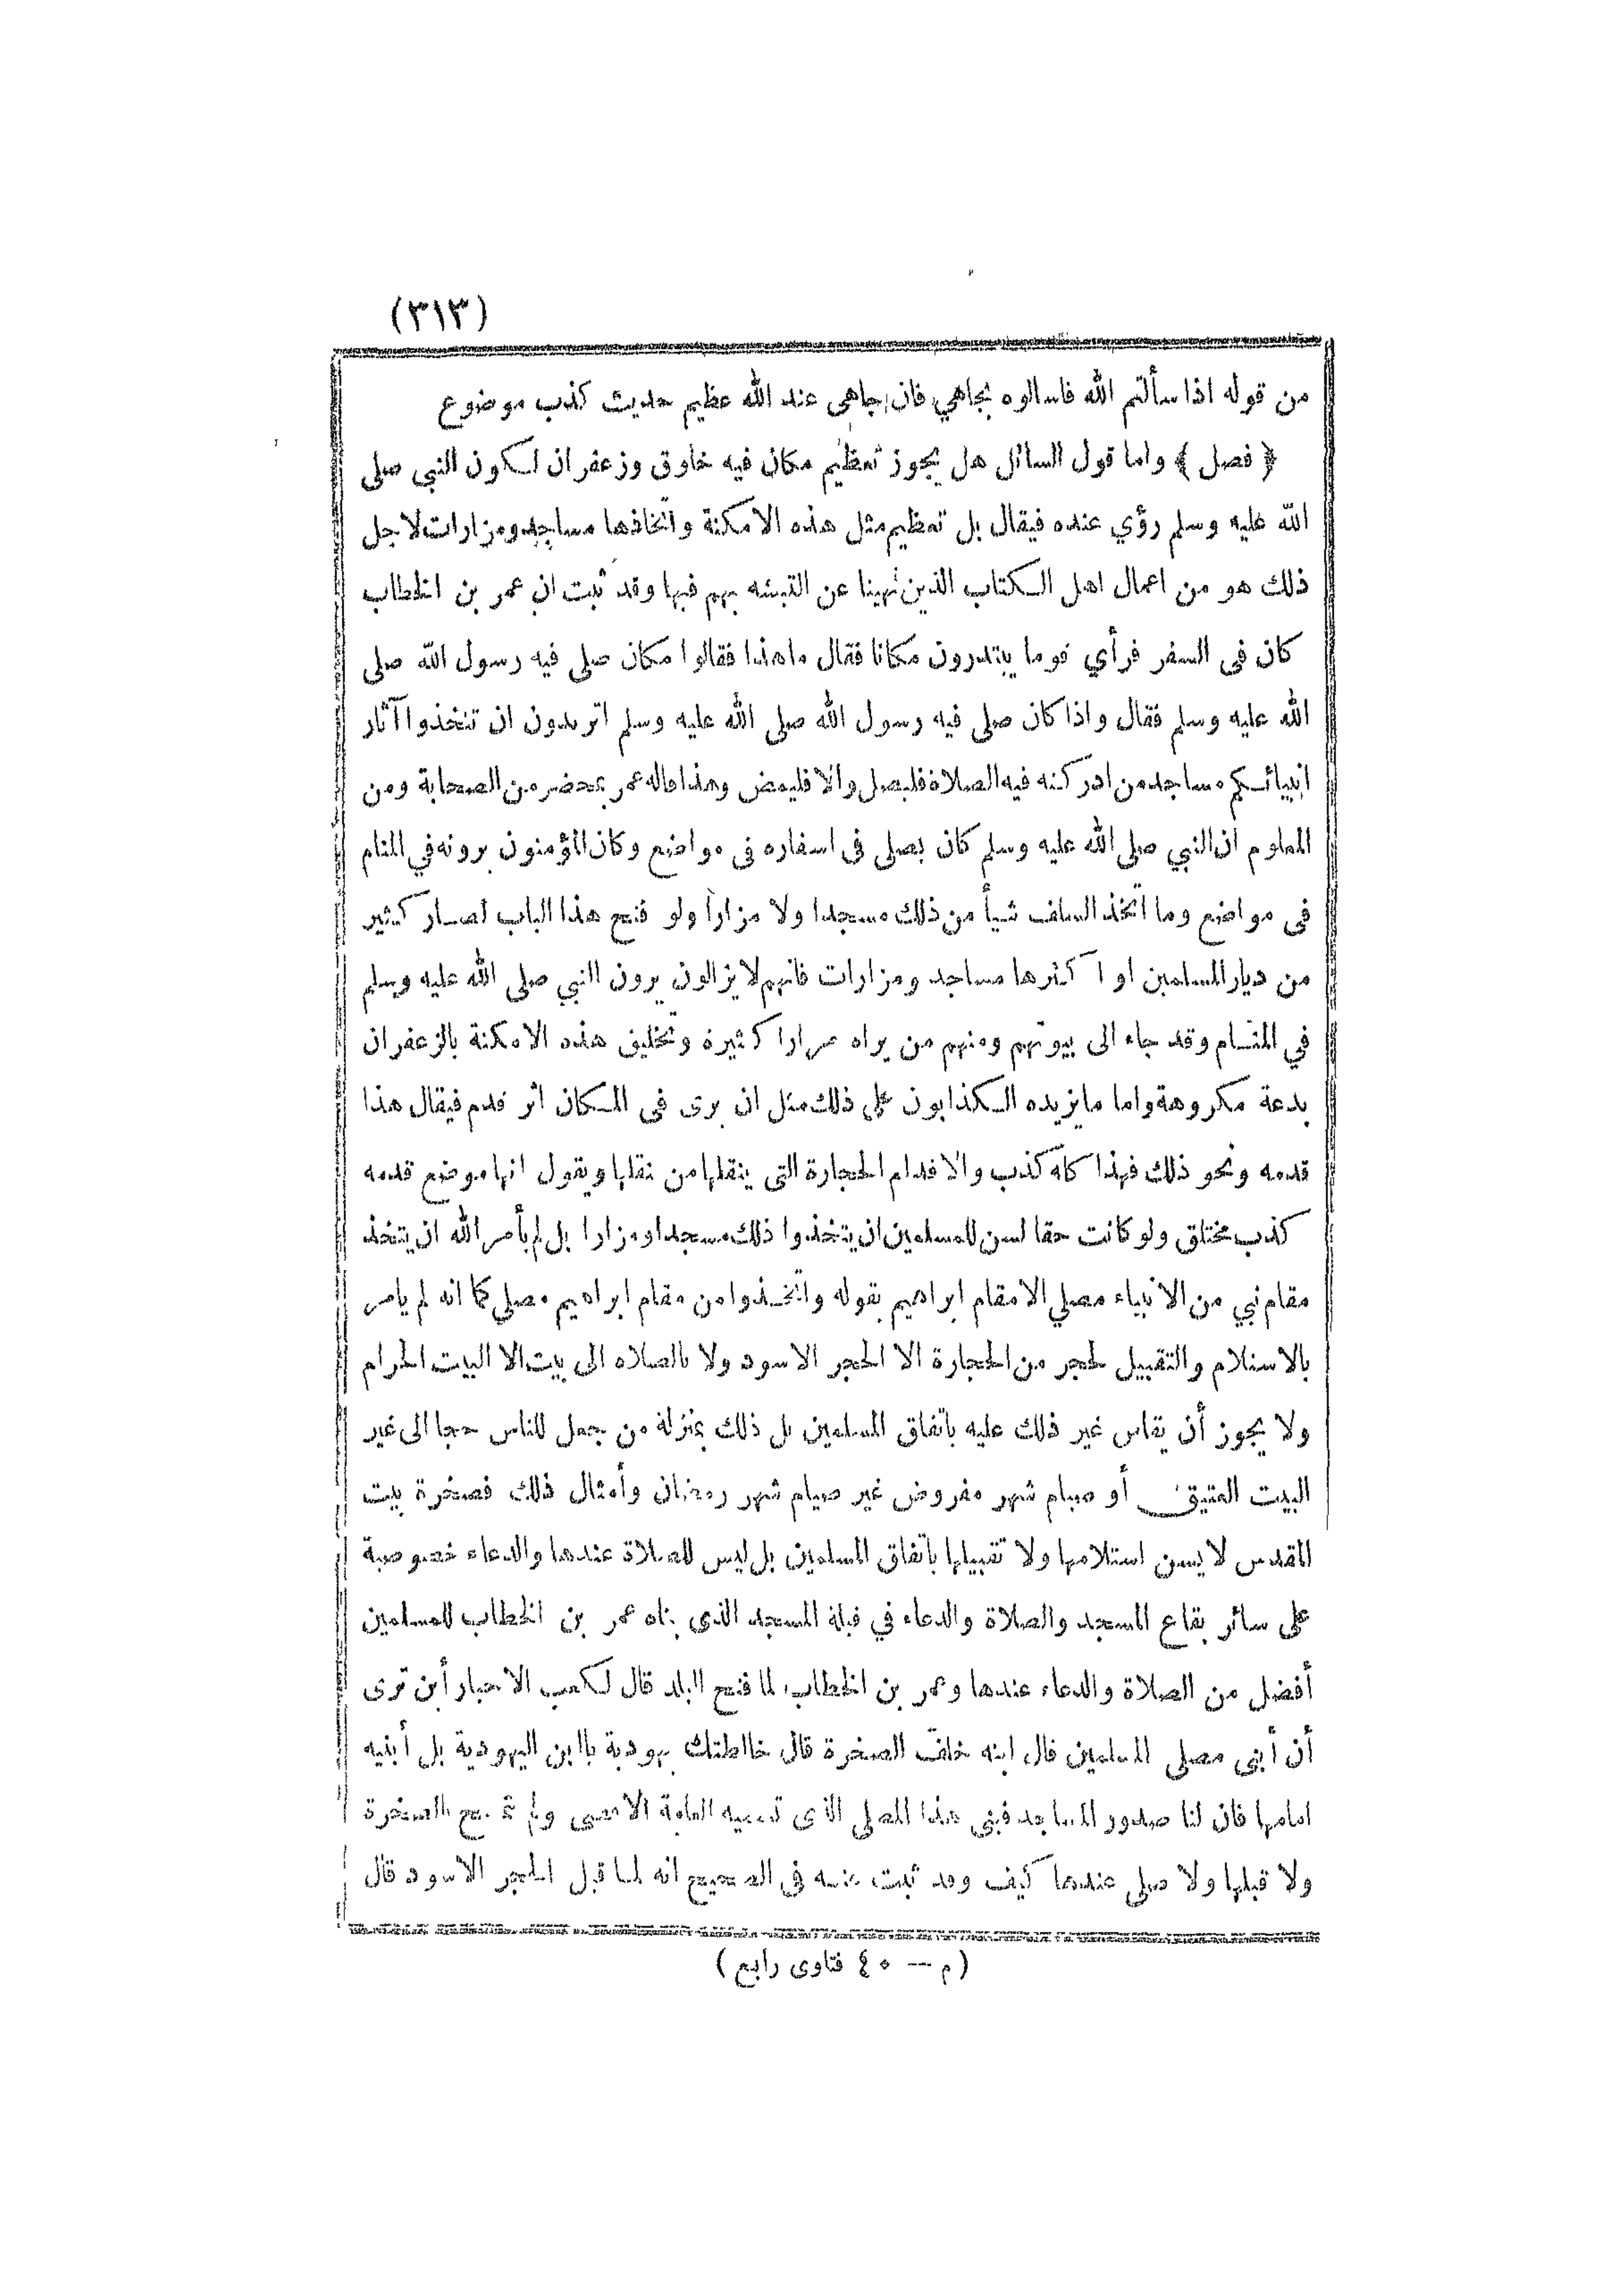 (٣١٣)
من قوله اذا سألتم الله فاسالوه بجاهي فان جاهى عند الله عظيم حديث كذب موضوع
﴿ فصل ﴾ واما قول السائل هل يجوز تعظيم مكان فيه خلوق وزعفران لكون النبي صلى
الله عليه وسلم رؤي عنده فيقال بل تعظيم مثل هذه الامكنة واتخاذها مساجد ومزارات لاجل
ذلك هو من اعمال اهل الكتاب الذين نهينا عن التشبه بهم فيها وقد ثبت ان عمر بن الخطاب
كان فى السفر فرأي قوما يبتدرون مكانا فقال ما هذا فقالوا مكان صلى فيه رسول الله صلى
الله عليه وسلم فقال واذا كان صلى فيه رسول الله صلى الله عليه وسلم اتريدون ان تتخذوا آثار
انبيائكم مساجد من ادركته فيه الصلاة فليصل والا فليمض وهذا قاله عمر بمحضر من الصحابة ومن
المعلوم ان النبي صلى الله عليه وسلم كان يصلى فى اسفاره فى مواضع وكان المؤمنون يرونه في المنام
فى مواضع وما اتخذ السلف شيأ من ذلك مسجدا ولا مزاراً ولو فتح هذا الباب لصار كثير
من ديار المسلمين او اكثرها مساجد ومزارات فانهم لا يزالون يرون النبي صلى الله عليه وسلم
في المنام وقد جاء الى بيوتهم ومنهم من يراه مرارا كثيرة وتخليق هذه الامكنة بالزعفران
بدعة مكروهة واما ما يزيده الكذابون على ذلك مثل ان يرى فى المكان اثر قدم فيقال هذا
قدمه ونحو ذلك فهذا كله كذب والاقدام الحجارة التى ينقلها من نقلها ويقول انها موضع قدمه
كذب مختلق ولو كانت حقا لسن للمسلمين ان يتخذوا ذلك مسجدا ومزارا بل لم يأمر الله ان يتخذ
مقام نبي من الانبياء مصلي الا مقام ابراهيم بقوله واتخذوا من مقام ابراهيم مصلى كما انه لم يامر
بالاستلام والتقبيل لحجر من الحجارة الا الحجر الاسود ولا بالصلاه الى بيت الا البيت الحرام
ولا يجوز أن يقاس غير ذلك عليه باتفاق المسلمين بل ذلك بمنزلة من جعل للناس حجا الى غير
البيت العتيق أو صيام شهر مفروض غير صيام شهر رمضان وأمثال ذلك فصخرة بيت
المقدس لا يسن استلامها ولا تقبيلها باتفاق المسلمين بل ليس للصلاة عندها والدعاء خصوصية
على سائر بقاع المسجد والصلاة والدعاء في قبلة المسجد الذى بناه عمر بن الخطاب للمسلمين
أفضل من الصلاة والدعاء عندها وعمر بن الخطاب لما فتح البلد قال لكعب الاحبار أين ترى
أن أبنى مصلى المسلمين قال ابنه خلف الصخرة قال خالطتك يهودية ياابن اليهودية بل أبنيه
امامها فان لنا صدور المساجد فبنى هذا المصلى الذى تسميه العامة الاقصى ولم يتمسح بالصخرة
ولا قبلها ولا صلى عندها كيف وقد ثبت عنه فى الصحيح انه لما قبل الحجر الاسود قال
(م — ٤٠ فتاوى رابع)